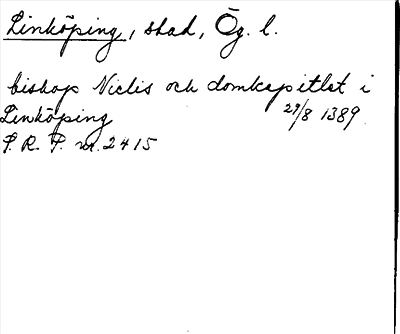 Linköping, stad, Ög. l.
biskop Niclis och domkapitlet i
Linköping 29/8 1389
S. R. P. nr. 2415